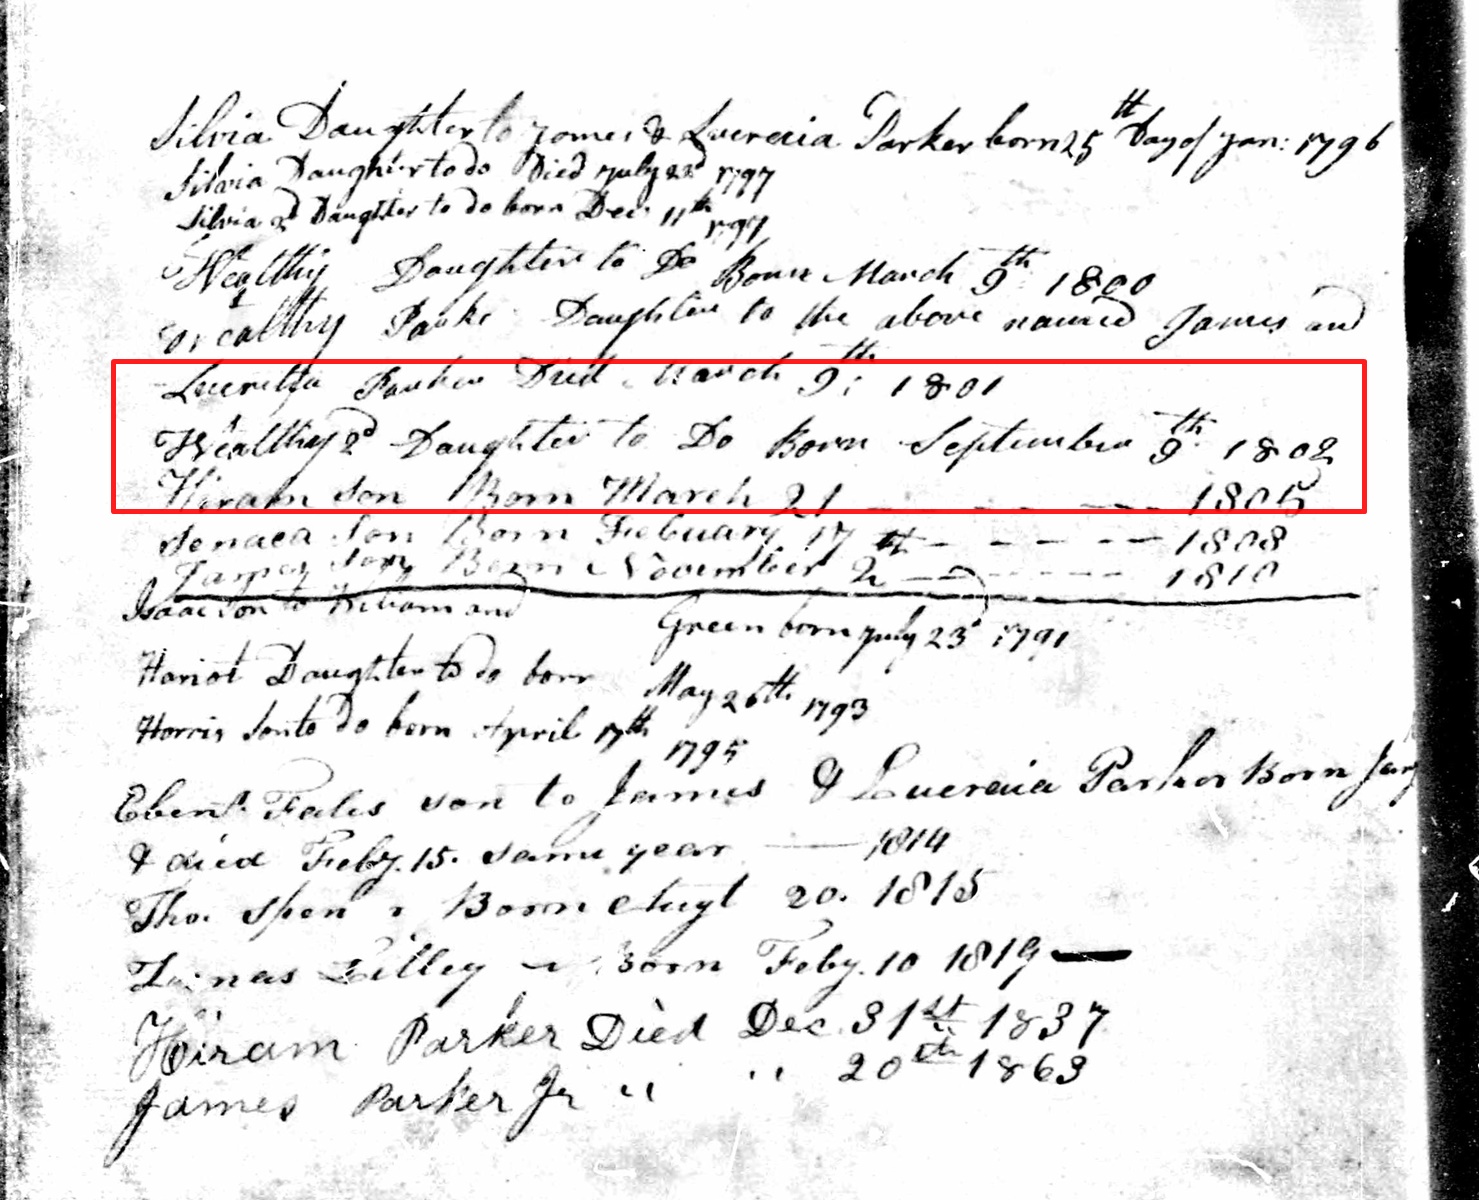 Silvia Daughter to James & Lucreaia Parker born 25th Day of Jan: 1796
Silvia Daughter to do Died July 22d 1797
Silvia 2d Daughter to do born Dec 11th 1797
Wealthy Daughter to Do Born March 9th 1800
Wealthy Parke Daughter to the above named James and
Lucretia Parker Died March 9th: 1801
Wealthy 2d Daughter to Do Born September 9th 1802
Hiram son Born March 21 - - - - 1805
Senaca Son Born Febuary 17 th - - - - 1808
James Son Born November 2 - - - - 1810
Isaac Son to William and Green born July 23d 1791
Hariot Daughter to do born May 26th 1793
Horris Son to Do born April 17th 1795
Ebenr. Fales son to James & Lucreaia Parker Born Jany
& died Feby. 15. same year — 1814
Tho. Born Augt 20. 1815
Lilley Born Feby. 10 1819 —
Hiram Parker Died Dec 31st 1837
James Parker Jr " " 20th 1863